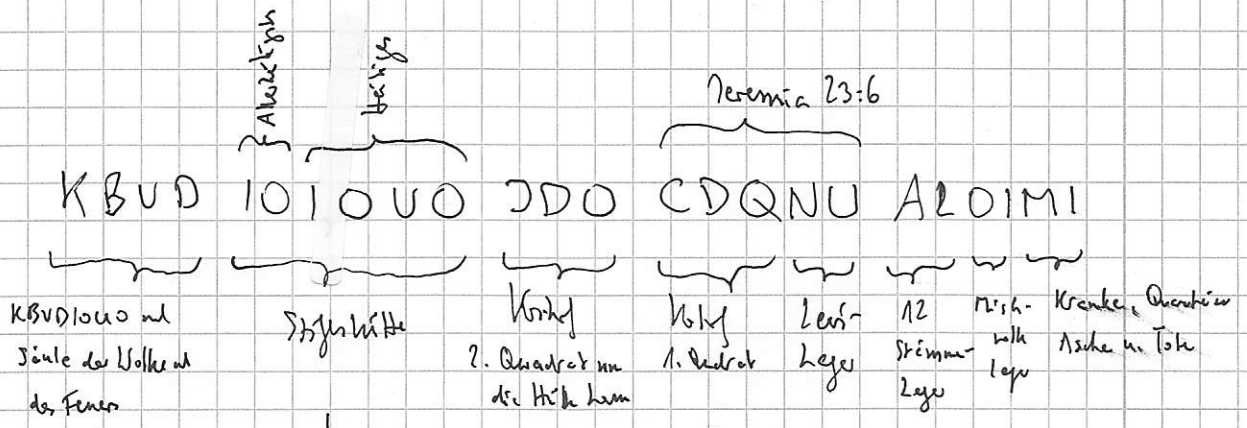 Allerheiligstes
Heiliges
Jeremia 23:6
KBVD IOIOUO JDO CDQNU ALOIMI
KBVDIOUO und
Säule der Wolke und
des Feuers
Stiftshütte
Vorhof
2. Quadrat um
die Hütte herum
Vorhof
1. Quadrat
Levi-
Lager
12
Stämme-
Lager
Misch-
volk
lager
Kranke, Quarantäne
Asche u. Tote